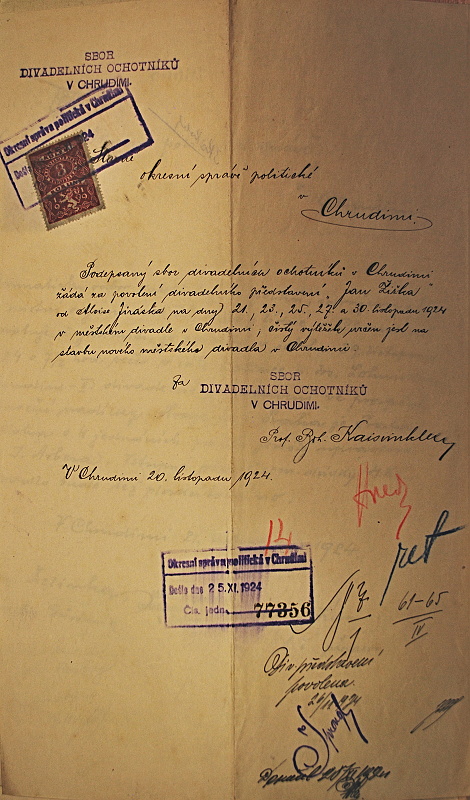 SBOR
DIVADELNÍCH OCHOTNÍKŮ
V CHRUDIMI.
Okresní správa politická v Chrudimi
24
8
Slavné
okresní správě politické
v
Chrudimi.
Podepsaný sbor divadelních ochotníků v Chrudimi
žádá za povolení divadelního představení „Jan Žižka"
od Aloise Jiráska na dny 21., 23., 25., 27. a 30. listopadu 1924
v městském divadle v Chrudimi; čistý výtěžek určen jest na
stavbu nového městského divadla v Chrudimi.
Za
SBOR
DIVADELNÍCH OCHOTNÍKŮ
V CHRUDIMI.
Prof. Boh. Kaisvinkler
V Chrudimi 20. listopadu 1924.
14
ret
Okresní správa politická v Chrudimi
Došlo dne 25. XI. 1924
Čís. jedn. 77356
61-65
IV
Div. představení
povolena.